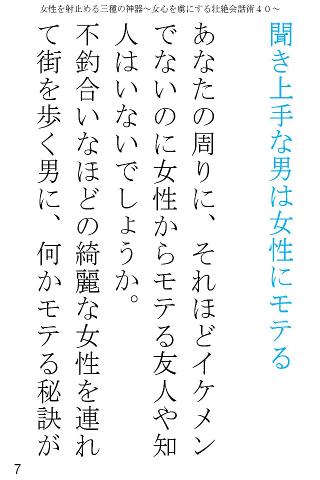 女性を射止める三種の神器～女心を虜にする壮絶会話術４０～
聞き上手な男は女性にモテる
あなたの周りに、それほどイケメン
でないのに女性からモテる友人や知
人はいないでしょうか。
不釣合いなほどの綺麗な女性を連れ
て街を歩く男に、何かモテる秘訣が
7